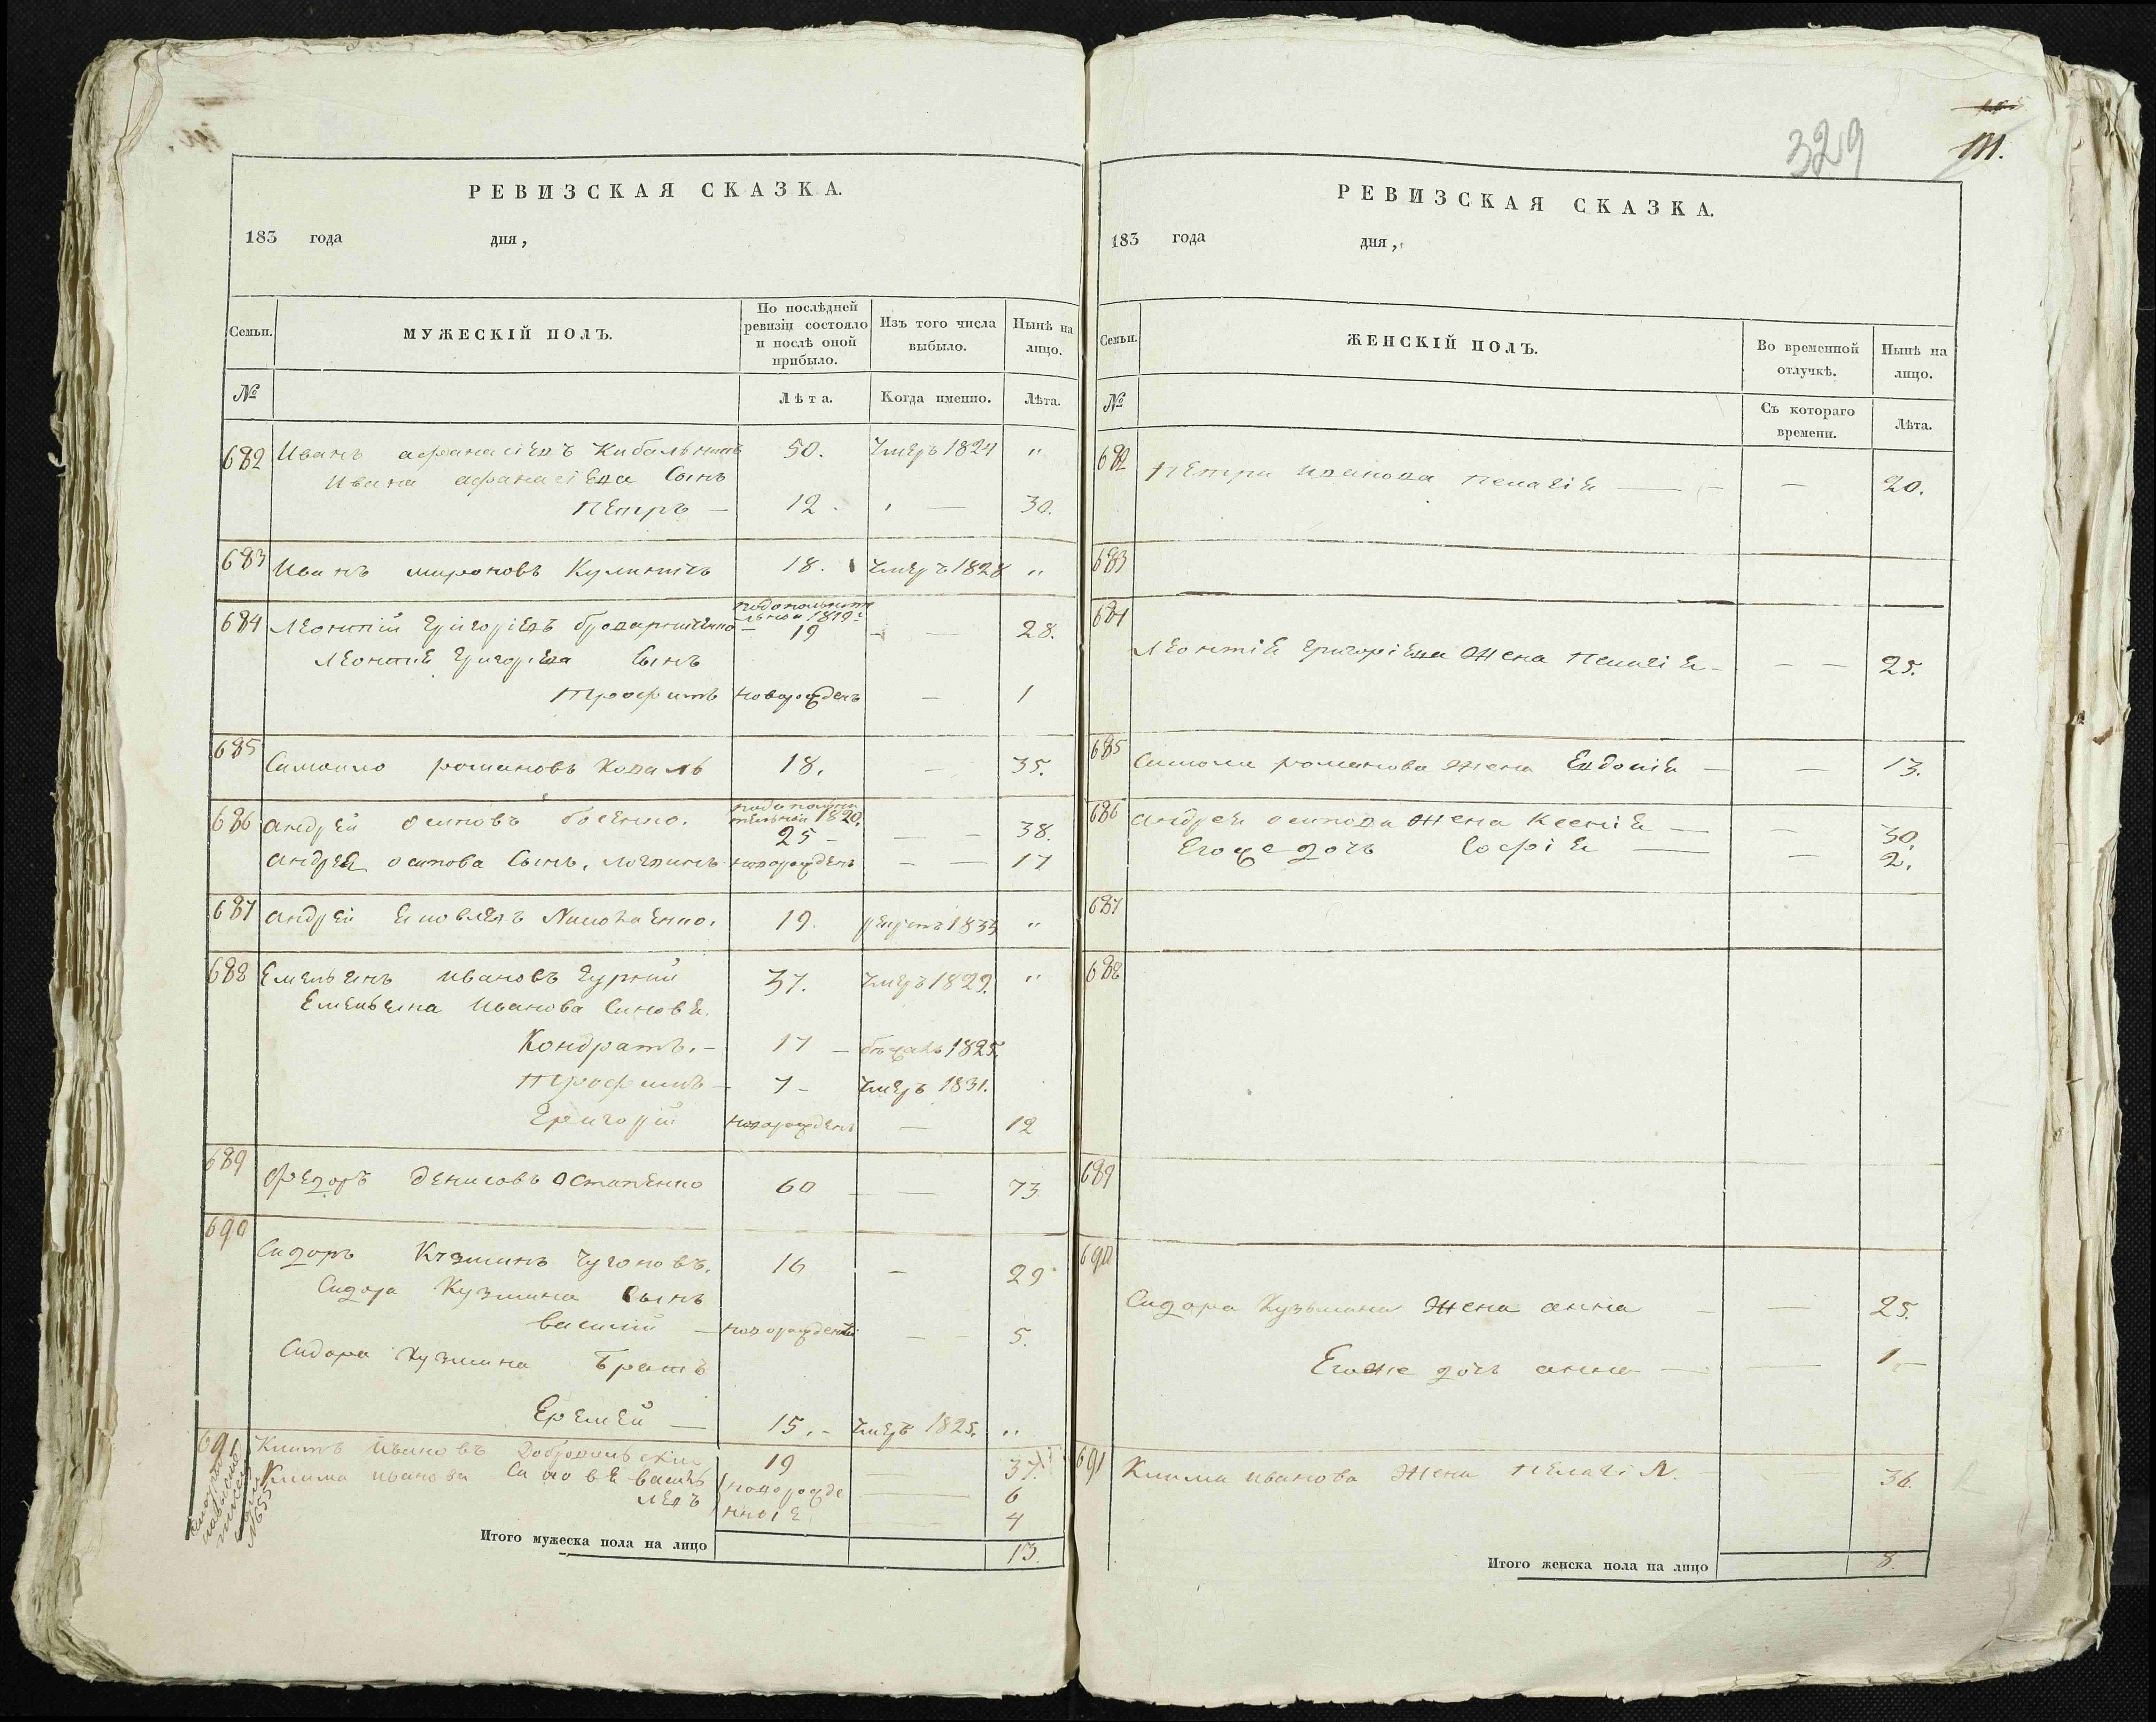 329
111.
РЕВИЗСКАЯ СКАЗКА.
183 года дня,
Семьи.
МУЖЕСКІЙ ПОЛЪ.
По послѣдней ревизіи состояло и послѣ оной прибыло.
Изъ того числа выбыло.
Нынѣ на лицо.
№
Лѣта.
Когда именно.
Лѣта.
682 Иванъ афанасіевъ Кибальникъ 50. Умеръ 1824 "
Ивана афанасіева Сынъ
Петръ — 12 — 30.
683 Иванъ мироновъ Кулиничъ 18. Умеръ 1828 "
684 Леонтій Григоріевъ 19 — 28.
Леонтіе Григоріева Сынъ
Трофимъ новорожденъ — 1
685 Самойло романовъ Коваль 18. — 35.
686 андрей осиповъ 1820. 25 — 38.
андрея осипова Сынъ. логвинъ новорожденъ — 17
687 андрей 19. 1833 "
688 Емельенъ Ивановъ 37. Умеръ 1829. "
Емельена Иванова Синове.
Кондратъ. — 17 — бѣжалъ 1825.
Трофимъ — 7 — Умеръ 1831.
Григорій новорожденъ — 12
689 Федоръ денисовъ Остапенко 60 — 73
690
Сидоръ Кузминъ Чугоновъ. 16 — 29
Сидора Кузмина Сынъ
Василій — новорожденій — 5.
Сидора Кузмина Братъ
Еремей — 15. — Умеръ 1825. "
691 Климъ Ивановъ 19 — 37.
Клима иванова Синове новорожде 6
нніе 4
№655
Итого мужеска пола на лицо 13.
РЕВИЗСКАЯ СКАЗКА.
183 года дня,
Семьи.
ЖЕНСКІЙ ПОЛЪ.
Во временной отлучкѣ.
Нынѣ на лицо.
№
Съ котораго времени.
Лѣта.
682 Петра иванова пелагіе — 20.
683
684
Леонтіе григоріева Жена Пелагіе — 25.
685 Самойла романова Жена Евдокіе — 13.
686 андрея осипова Жена Ксеніе — 30.
Егоже дочь Софіе — 2.
687
688
689
690
Сидора Кузьмина Жена анна — 25.
Егоже дочь анна — 1
691 Клима иванова Жена пелагія. 36.
Итого женска пола на лицо 8.